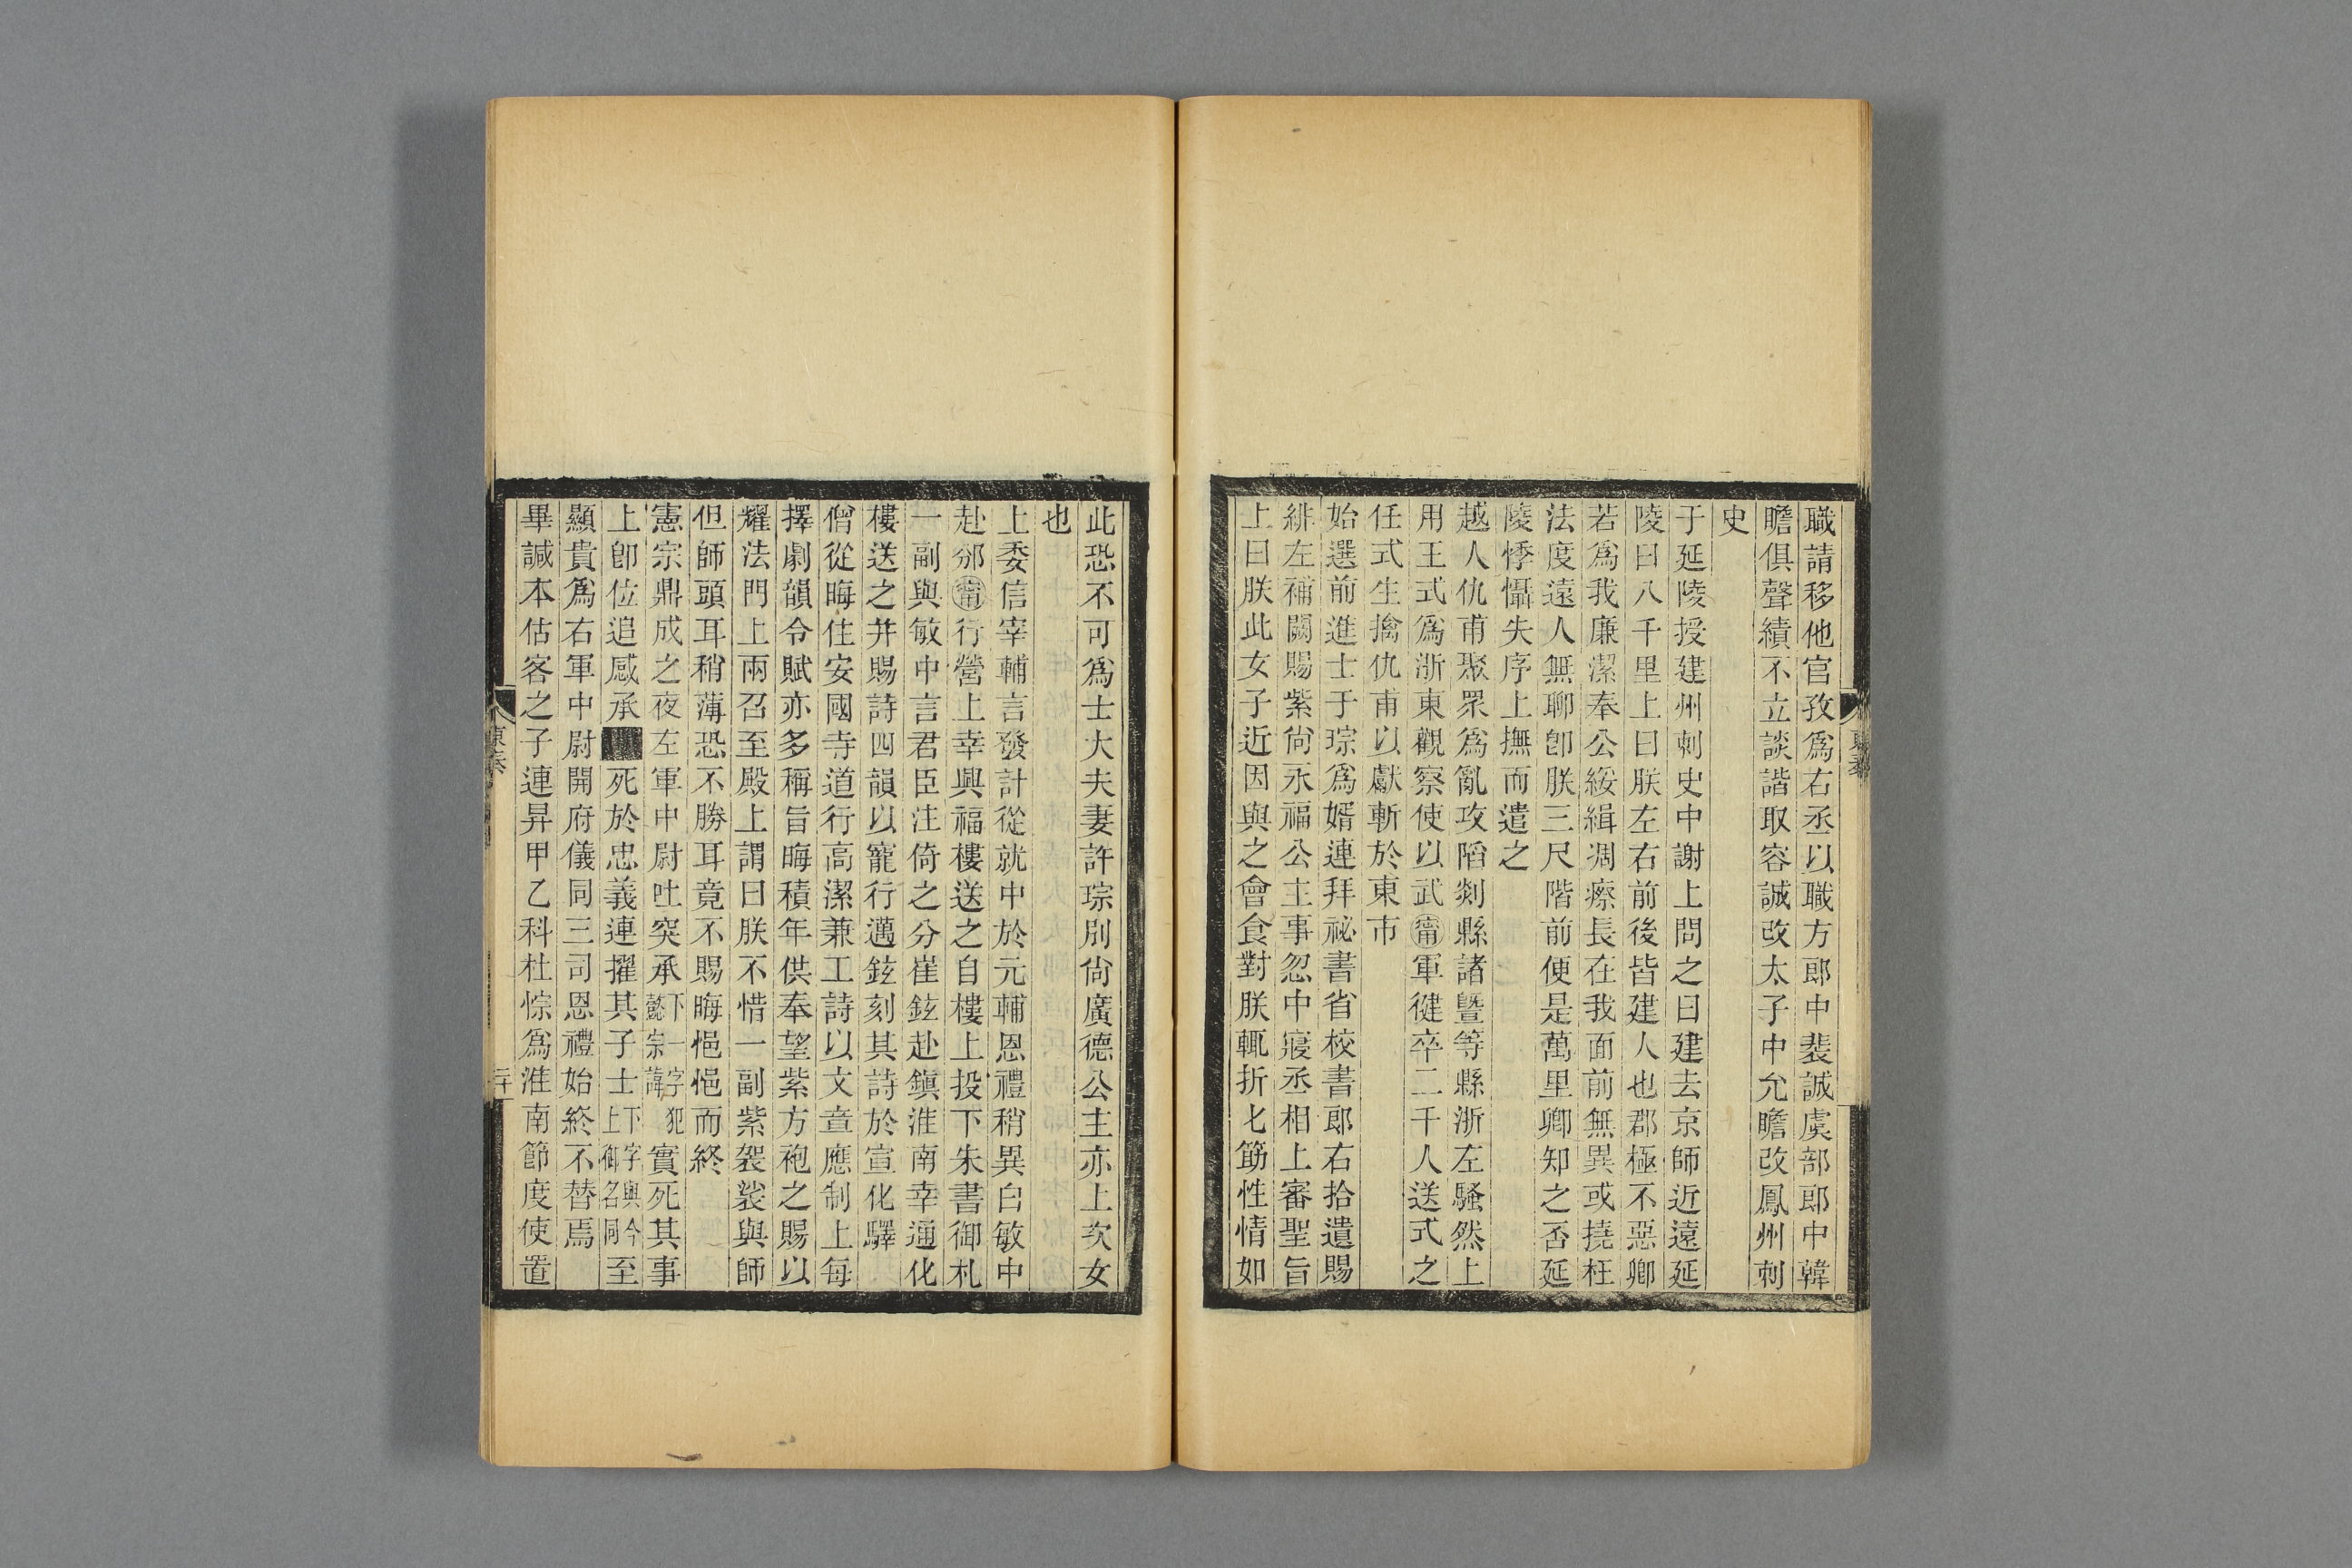 職請移他官孜爲右丞以職方郎中裴誠虞部郎中韓
瞻俱聲績不立談諧取容誠改太子中允瞻改鳳州刺
史
于延陵授建州刺史中謝上問之曰建去京師近遠延
陵曰八千里上曰朕左右前後皆建人也郡極不惡卿
若爲我廉潔奉公綏緝凋瘵長在我面前無異或撓枉
法度遠人無聊卽朕三尺階前便是萬里卿知之否延
陵悸懾失序上撫而遣之
越人仇甫聚眾爲亂攻陷剡縣諸暨等縣浙左騷然上
用王式爲浙東觀察使以武甯軍徤卒二千人送式之
任式生擒仇甫以獻斬於東市
始選前進士于琮爲婿連拜祕書省校書郎右拾遺賜
緋左補闕賜紫尙永福公主事忽中寢丞相上審聖旨
上曰朕此女子近因與之會食對朕輒折匕筯性情如
此恐不可爲士大夫妻許琮別尙廣德公主亦上次女
也
上委信宰輔言發計從就中於元輔恩禮稍異白敏中
赴邠甯行營上幸興福樓送之自樓上投下朱書御札
一副與敏中言君臣注倚之分崔鉉赴鎭淮南幸通化
樓送之并賜詩四韻以寵行邁鉉刻其詩於宣化驛
僧從晦住安國寺道行高潔兼工詩以文章應制上每
擇劇韻令賦亦多稱旨晦積年供奉望紫方袍之賜以
耀法門上兩召至殿上謂曰朕不惜一副紫袈裟與師
但師頭耳稍薄恐不勝耳竟不賜晦悒悒而終
憲宗鼎成之夜左軍中尉吐突承下一字犯懿宗諱實死其事
上卽位追感承死於忠義連擢其子士下字與今上御名同至
顯貴爲右軍中尉開府儀同三司恩禮始終不替焉
畢諴本估客之子連昇甲乙科杜悰爲淮南節度使置